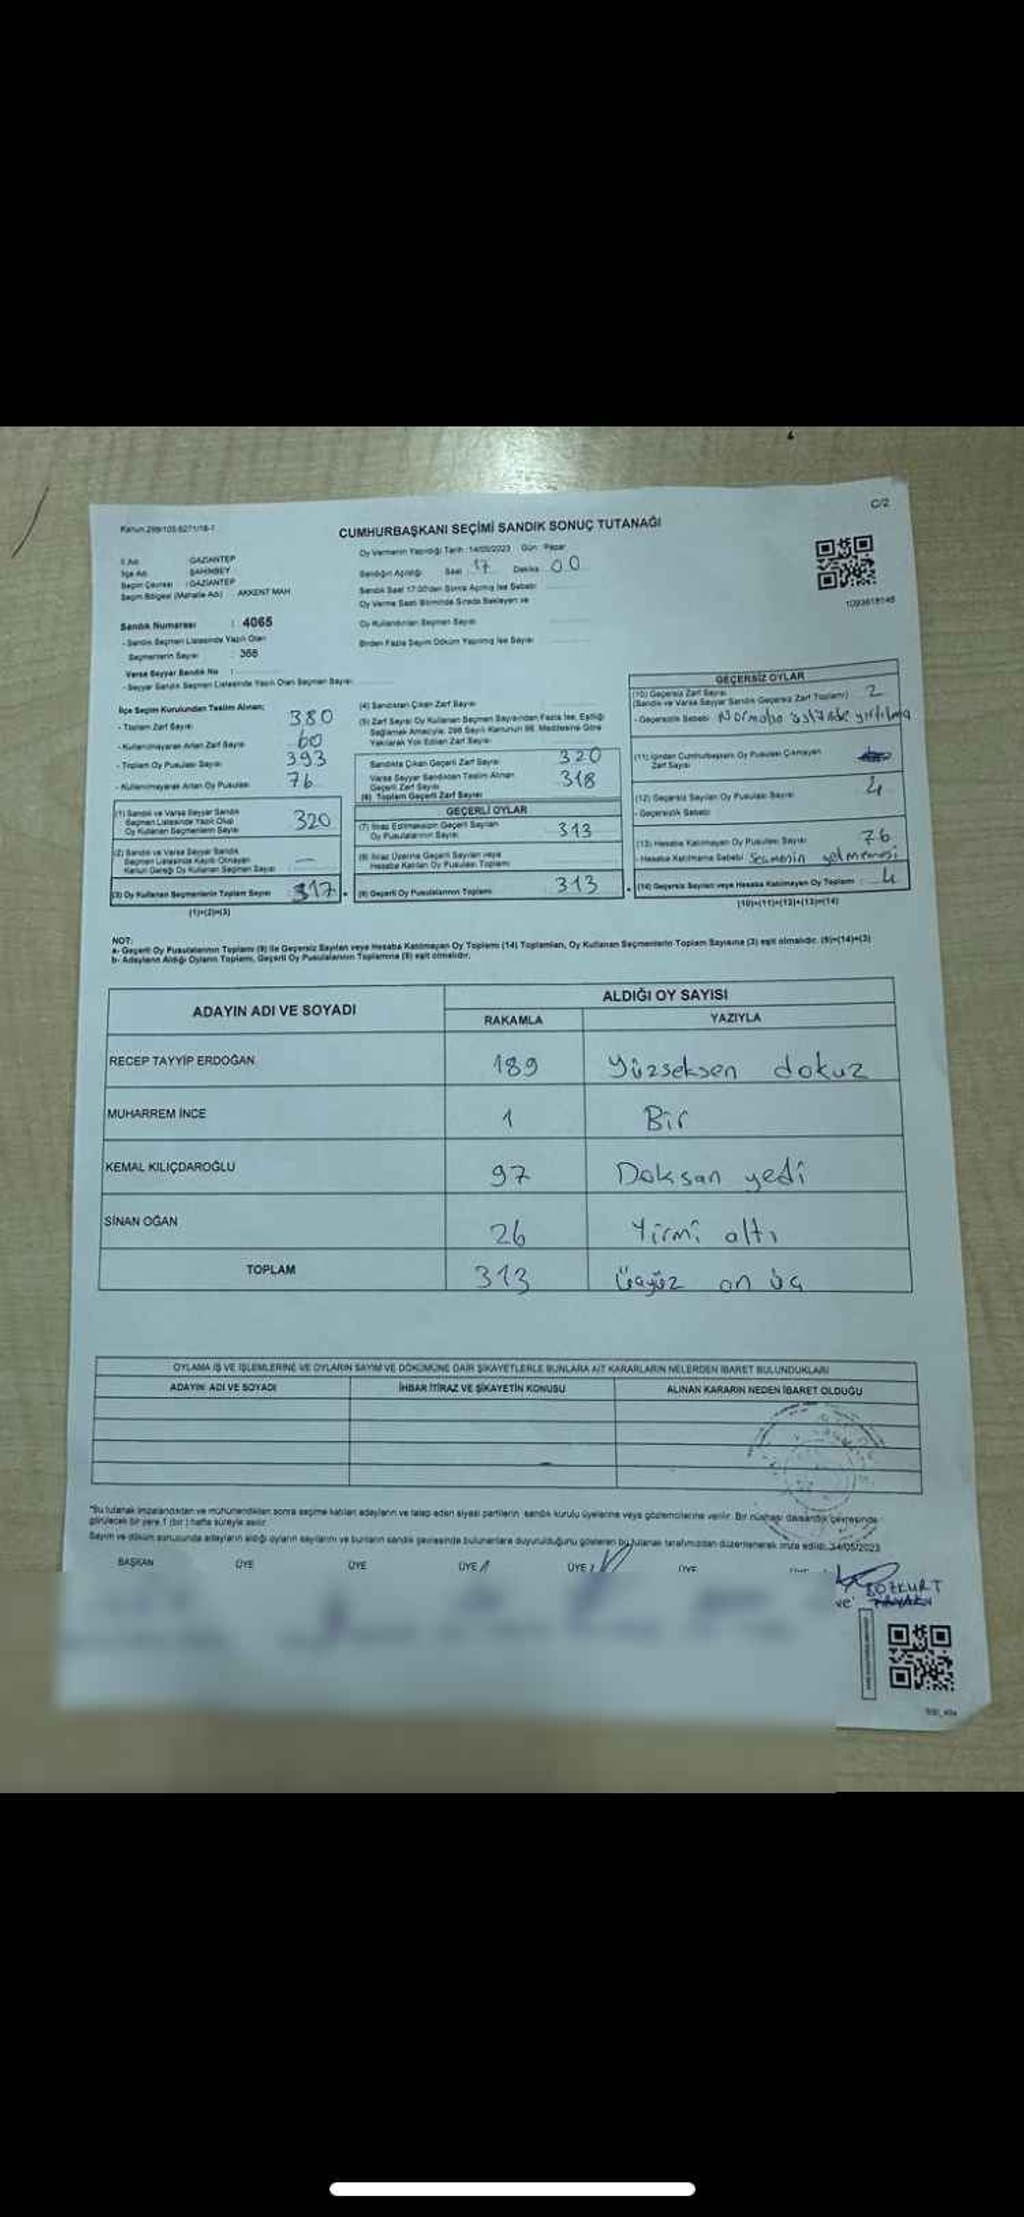 Kanun 298/105-6271/18-1
C/2
CUMHURBAŞKANI SEÇİMİ SANDIK SONUÇ TUTANAĞI
İl Adı : GAZİANTEP
İlçe Adı : ŞAHİNBEY
Seçim Çevresi : GAZİANTEP
Seçim Bölgesi (Mahalle Adı) : AKKENT MAH
Sandık Numarası : 4065
- Sandık Seçmen Listesinde Yazılı Olan
Seçmenlerin Sayısı : 366
Varsa Seyyar Sandık No :
- Seyyar Sandık Seçmen Listesinde Yazılı Olan Seçmen Sayısı
Oy Vermenin Yapıldığı Tarih : 14/05/2023 Gün : Pazar
Sandığın Açıldığı Saat 17 Dakika 00
Sandık Saat 17:00'den Sonra Açılmış İse Sebebi
Oy Verme Saati Bitiminde Sırada Bekleyen ve
Oy Kullandırılan Seçmen Sayısı
Birden Fazla Sayım Döküm Yapılmış İse Sayısı
İlçe Seçim Kurulundan Teslim Alınan;
- Toplam Zarf Sayısı 380
- Kullanılmayarak Artan Zarf Sayısı 60
- Toplam Oy Pusulası Sayısı 393
- Kullanılmayarak Artan Oy Pusulası 76
(1) Sandık ve Varsa Seyyar Sandık
Seçmen Listesinde Yazılı Olup
Oy Kullanan Seçmenlerin Sayısı 320
(2) Sandık ve Varsa Seyyar Sandık
Seçmen Listesinde Kayıtlı Olmayan
Kanun Gereği Oy Kullanan Seçmen Sayısı —
(3) Oy Kullanan Seçmenlerin Toplam Sayısı 317
(1)+(2)=(3)
(4) Sandıktan Çıkan Zarf Sayısı
(5) Zarf Sayısı Oy Kullanan Seçmen Sayısından Fazla İse, Eşitliği
Sağlamak Amacıyla, 298 Sayılı Kanunun 98. Maddesine Göre
Yakılarak Yok Edilen Zarf Sayısı
Sandıkta Çıkan Geçerli Zarf Sayısı 320
Varsa Seyyar Sandıktan Teslim Alınan
Geçerli Zarf Sayısı 318
(6) Toplam Geçerli Zarf Sayısı
GEÇERLİ OYLAR
(7) İtiraz Edilmeksizin Geçerli Sayılan
Oy Pusulalarının Sayısı 313
(8) İtiraz Üzerine Geçerli Sayılan veya
Hesaba Katılan Oy Pusulası Toplamı
(9) Geçerli Oy Pusulalarının Toplamı 313
GEÇERSİZ OYLAR
(10) Geçersiz Zarf Sayısı
(Sandık ve Varsa Seyyar Sandık Geçersiz Zarf Toplamı) 2
- Geçersizlik Sebebi Normalin üstünde yırtılma
(11) İçinden Cumhurbaşkanı Oy Pusulası Çıkmayan
Zarf Sayısı
(12) Geçersiz Sayılan Oy Pusulası Sayısı 4
- Geçersizlik Sebebi
(13) Hesaba Katılmayan Oy Pusulası Sayısı 76
- Hesaba Katılmama Sebebi Seçmenin gelmemesi
(14) Geçersiz Sayılan veya Hesaba Katılmayan Oy Toplamı 4
(10)+(11)+(12)+(13)=(14)
NOT:
a- Geçerli Oy Pusulalarının Toplamı (9) ile Geçersiz Sayılan veya Hesaba Katılmayan Oy Toplamı (14) Toplamları, Oy Kullanan Seçmenlerin Toplam Sayısına (3) eşit olmalıdır. (9)+(14)=(3)
b- Adayların Aldığı Oyların Toplamı, Geçerli Oy Pusulalarının Toplamına (9) eşit olmalıdır.
ADAYIN ADI VE SOYADI
ALDIĞI OY SAYISI
RAKAMLA YAZIYLA
RECEP TAYYİP ERDOĞAN 189 Yüzseksen dokuz
MUHARREM İNCE 1 Bir
KEMAL KILIÇDAROĞLU 97 Doksan yedi
SİNAN OĞAN 26 Yirmi altı
TOPLAM 313 Üçyüz on üç
OYLAMA İŞ VE İŞLEMLERİNE VE OYLARIN SAYIM VE DÖKÜMÜNE DAİR ŞİKAYETLERLE BUNLARA AİT KARARLARIN NELERDEN İBARET BULUNDUKLARI
ADAYIN ADI VE SOYADI İHBAR İTİRAZ VE ŞİKAYETİN KONUSU ALINAN KARARIN NEDEN İBARET OLDUĞU
*Bu tutanak imzalandıktan ve mühürlendikten sonra seçime katılan adayların ve talep eden siyasi partilerin sandık kurulu üyelerine veya gözlemcilerine verilir. Bir nüshası da sandık çevresinde
görülecek bir yere 1 (bir) hafta süreyle asılır.
Sayım ve döküm sonucunda adayların aldığı oyların sayılarını ve bunların sandık çevresinde bulunanlara duyurulduğunu gösteren bu tutanak tarafımızdan düzenlenerek imza edildi. 14/05/2023
BAŞKAN ÜYE ÜYE ÜYE ÜYE ÜYE
BOZKURT